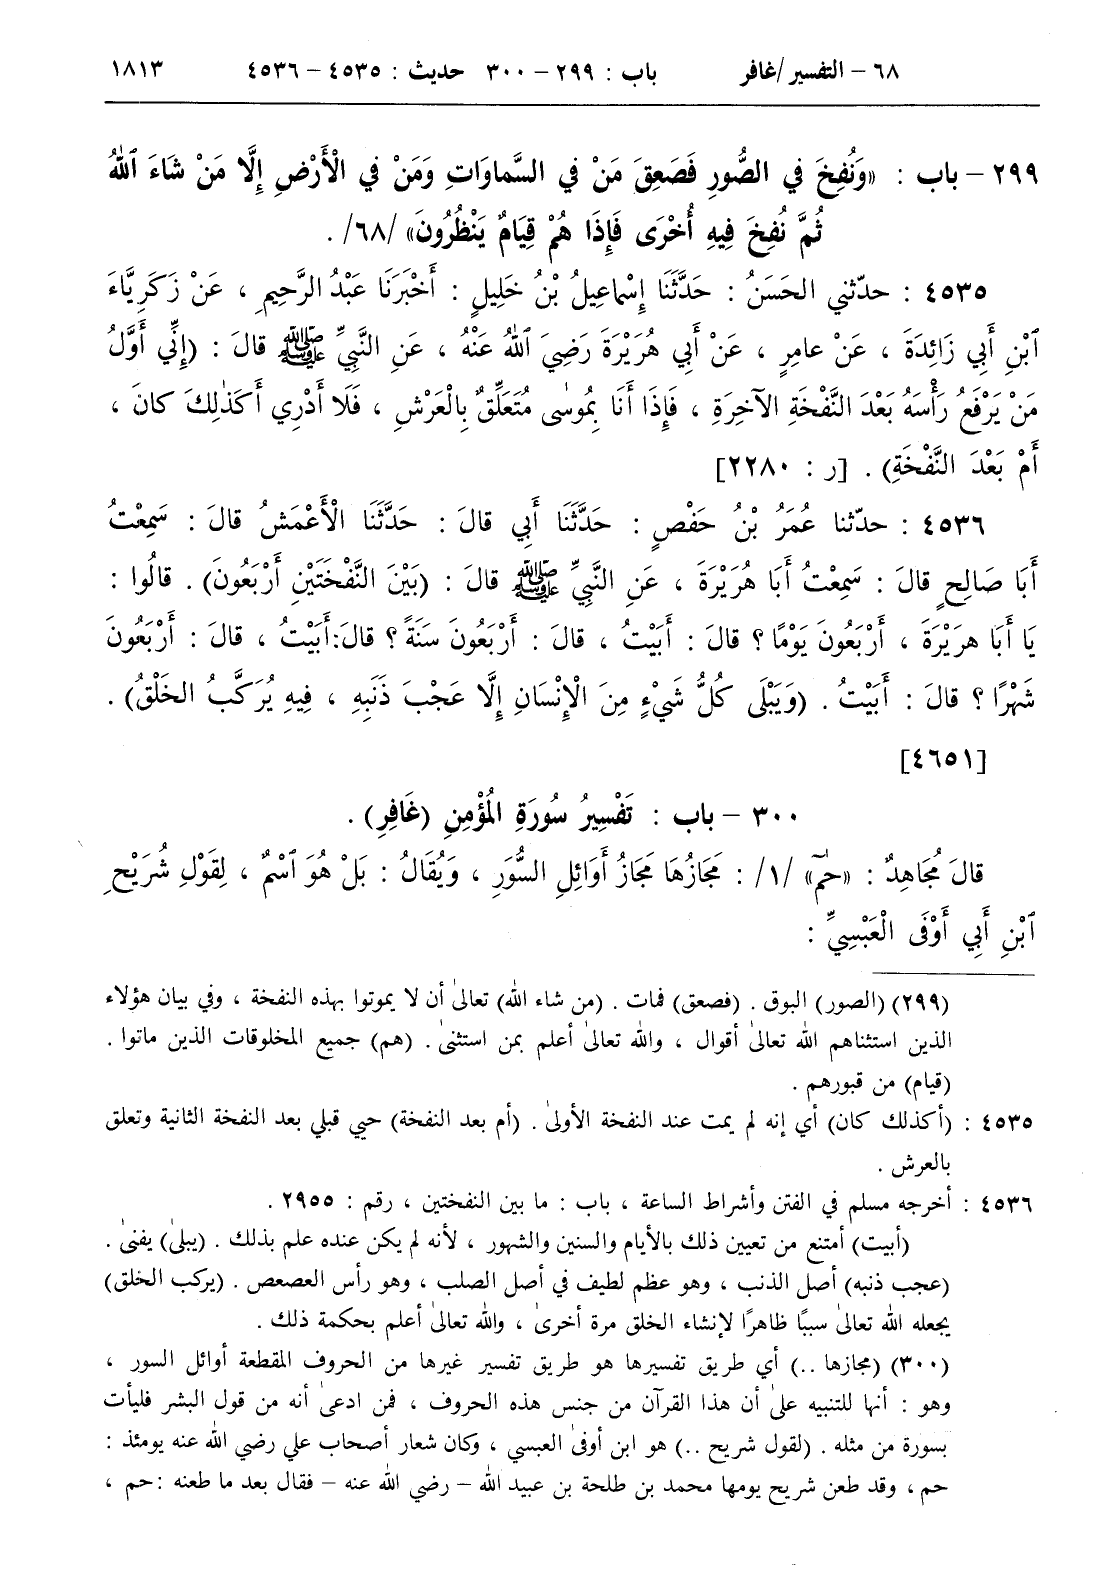 ٦٨ – التفسير/غافر باب : ٢٩٩ – ٣٠٠ حديث : ٤٥٣٥ – ٤٥٣٦ ١٨١٣
٢٩٩ – باب : «وَنُفِخَ في الصُّورِ فَصَعِقَ مَنْ في السَّماوَاتِ وَمَنْ في الْأَرْضِ إِلَّا مَنْ شَاءَ ٱللهُ
ثُمَّ نُفِخَ فِيهِ أُخْرَى فَإِذَا هُمْ قِيَامٌ يَنْظُرُونَ» /٦٨/ .
٤٥٣٥ : حدّثني الحَسَنُ : حَدَّثَنَا إِسْماعِيلُ بْنُ خَلِيلٍ : أَخْبَرَنَا عَبْدُ الرَّحِيمِ ، عَنْ زَكَرِيَّاءَ
ٱبْنِ أَبِي زَائِدَةَ ، عَنْ عامِرٍ ، عَنْ أَبِي هُرَيْرَةَ رَضِيَ ٱللهُ عَنْهُ ، عَنِ النَّبِيِّ ﷺ قالَ : (إِنِّي أَوَّلُ
مَنْ يَرْفَعُ رَأْسَهُ بَعْدَ النَّفْخَةِ الآخِرَةِ ، فَإِذَا أَنَا بِمُوسٰى مُتَعَلِّقٌ بِالْعَرْشِ ، فَلَا أَدْرِي أَكَذٰلِكَ كانَ ،
أَمْ بَعْدَ النَّفْخَةِ) . [ر : ٢٢٨٠]
٤٥٣٦ : حدّثنا عُمَرُ بْنُ حَفْصٍ : حَدَّثَنَا أَبِي قالَ : حَدَّثَنَا الْأَعْمَشُ قالَ : سَمِعْتُ
أَبَا صَالِحٍ قالَ : سَمِعْتُ أَبَا هُرَيْرَةَ ، عَنِ النَّبِيِّ ﷺ قالَ : (بَيْنَ النَّفْخَتَيْنِ أَرْبَعُونَ) . قالُوا :
يَا أَبَا هرَيْرَةَ ، أَرْبَعُونَ يَوْمًا ؟ قالَ : أَبَيْتُ ، قالَ : أَرْبَعُونَ سَنَةً ؟ قالَ:أَبَيْتُ ، قالَ : أَرْبَعُونَ
شَهْرًا ؟ قالَ : أَبَيْتُ . (وَيَبْلَى كُلُّ شَيْءٍ مِنَ الْإِنْسَانِ إِلَّا عَجْبَ ذَنَبِهِ ، فِيهِ يُرَكَّبُ الخَلْقُ) .
[٤٦٥١]
٣٠٠ – باب : تَفْسِيرُ سُورَةِ المُؤْمِنِ (غَافِرِ) .
قالَ مُجَاهِدٌ : «حٰمۤ» /١/ : مَجَازُهَا مَجَازُ أَوَائِلِ السُّوَرِ ، وَيُقَالُ : بَلْ هُوَ ٱسْمٌ ، لِقَوْلِ شُرَيْحِ
ٱبْنِ أَبِي أَوْفَى الْعَبْسِيِّ :
(٢٩٩) (الصور) البوق . (فصعق) فمات . (من شاء الله) تعالىٰ أن لا يموتوا بهذه النفخة ، وفي بيان هؤلاء
الذين استثناهم الله تعالىٰ أقوال ، والله تعالىٰ أعلم بمن استثنىٰ . (هم) جميع المخلوقات الذين ماتوا .
(قيام) من قبورهم .
٤٥٣٥ : (أكذلك كان) أي إنه لم يمت عند النفخة الأولىٰ . (أم بعد النفخة) حيي قبلي بعد النفخة الثانية وتعلق
بالعرش .
٤٥٣٦ : أخرجه مسلم في الفتن وأشراط الساعة ، باب : ما بين النفختين ، رقم : ٢٩٥٥ .
(أبيت) أمتنع من تعيين ذلك بالأيام والسنين والشهور ، لأنه لم يكن عنده علم بذلك . (يبلىٰ) يفنىٰ .
(عجب ذنبه) أصل الذنب ، وهو عظم لطيف في أصل الصلب ، وهو رأس العصعص . (يركب الخلق)
يجعله الله تعالىٰ سببًا ظاهرًا لإنشاء الخلق مرة أخرىٰ ، والله تعالىٰ أعلم بحكمة ذلك .
(٣٠٠) (مجازها ..) أي طريق تفسيرها هو طريق تفسير غيرها من الحروف المقطعة أوائل السور ،
وهو : أنها للتنبيه علىٰ أن هذا القرآن من جنس هذه الحروف ، فمن ادعىٰ أنه من قول البشر فليأت
بسورة من مثله . (لقول شريح ..) هو ابن أوفىٰ العبسي ، وكان شعار أصحاب علي رضي الله عنه يومئذ :
حم ، وقد طعن شريح يومها محمد بن طلحة بن عبيد الله – رضي الله عنه – فقال بعد ما طعنه :حم ،